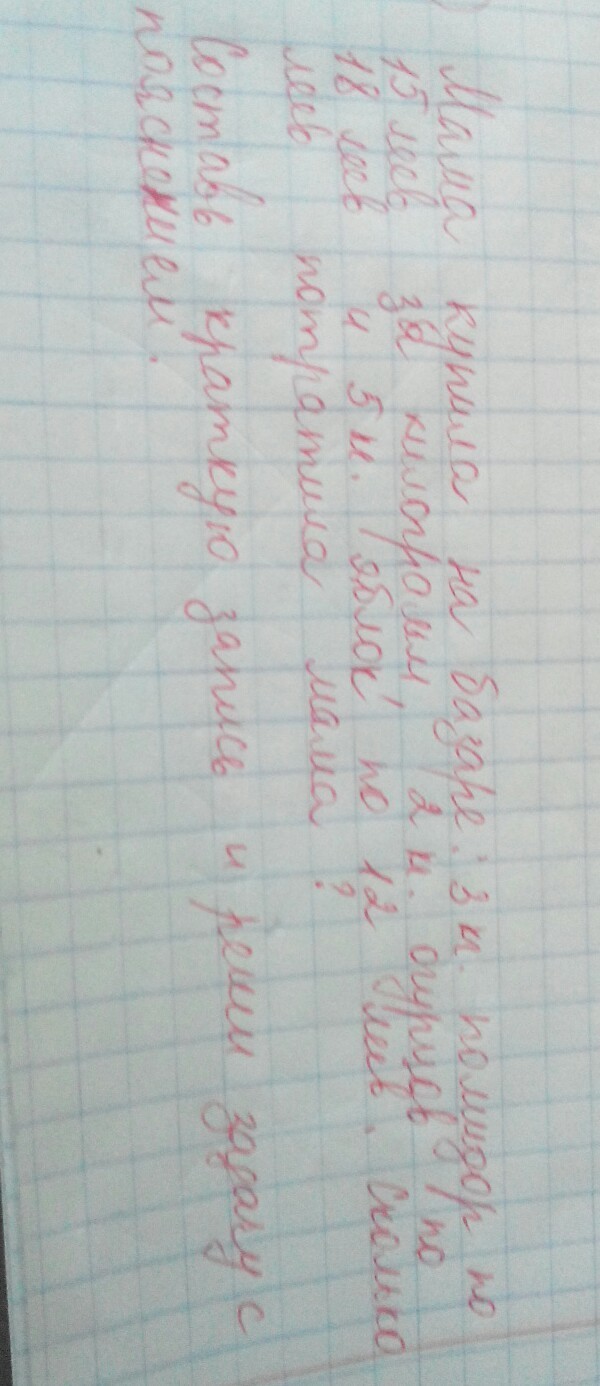 Мама купила на базаре: 3 к. помидор по
15 леев за килограмм, 2 к. огурцов по
18 леев и 5 к. яблок по 12 леев. Сколько
леев потратила мама?
Составь краткую запись и реши задачу с
пояснением.